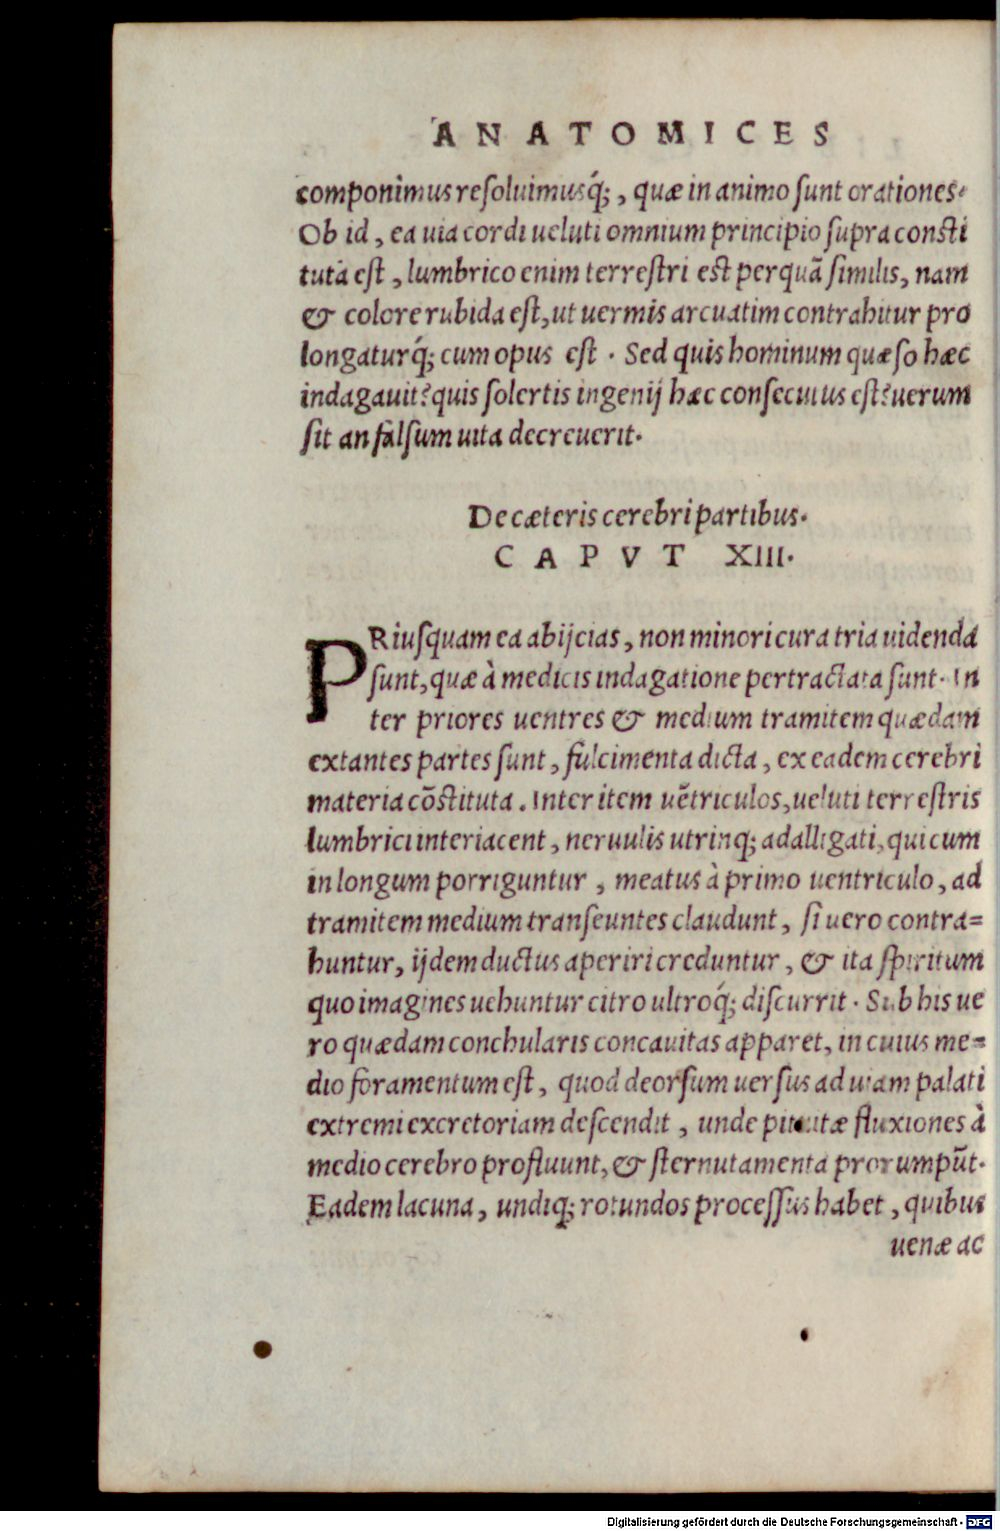 ANATOMICES
componimus reſoluimusq́;, quæ in animo ſunt orationes.
Ob id, ea uia cordi ueluti omnium principio ſupra conſti
tuta eſt, lumbrico enim terreſtri eſt perquā ſimilis, nam
& colore rubida eſt, ut uermis arcuatim contrahitur pro
longaturq́; cum opus eſt. Sed quis hominum quæſo hæc
indagauit? quis ſolertis ingenij hæc conſecutus eſt? uerum
ſit an falſum uita decreuerit.
De cæteris cerebri partibus.
CAPVT XIII.
PRiuſquam ea abijcias, non minori cura tria uidenda
ſunt, quæ à medicis indagatione pertractata ſunt. In
ter priores uentres & medium tramitem quædam
extantes partes ſunt, fulcimenta dicta, ex eadem cerebri
materia cōſtituta. Inter item uētriculos, ueluti terreſtris
lumbrici interiacent, neruulis utrinq; adalligati, qui cum
in longum porriguntur, meatus à primo uentriculo, ad
tramitem medium tranſeuntes claudunt, ſi uero contra=
huntur, ijdem ductus aperiri creduntur, & ita ſpiritum
quo imagines uehuntur citro ultroq́; diſcurrit. Sub his ue
ro quædam conchularis concauitas apparet, in cuius me=
dio foramentum eſt, quod deorſum uerſus ad uiam palati
extremi excretoriam deſcendit, unde pituitæ fluxiones à
medio cerebro profluunt, & ſternutamenta prorumpūt.
Eadem lacuna, undiq; rotundos proceſſus habet, quibus
uenæ ac
Digitalisierung gefördert durch die Deutsche Forschungsgemeinschaft - DFG